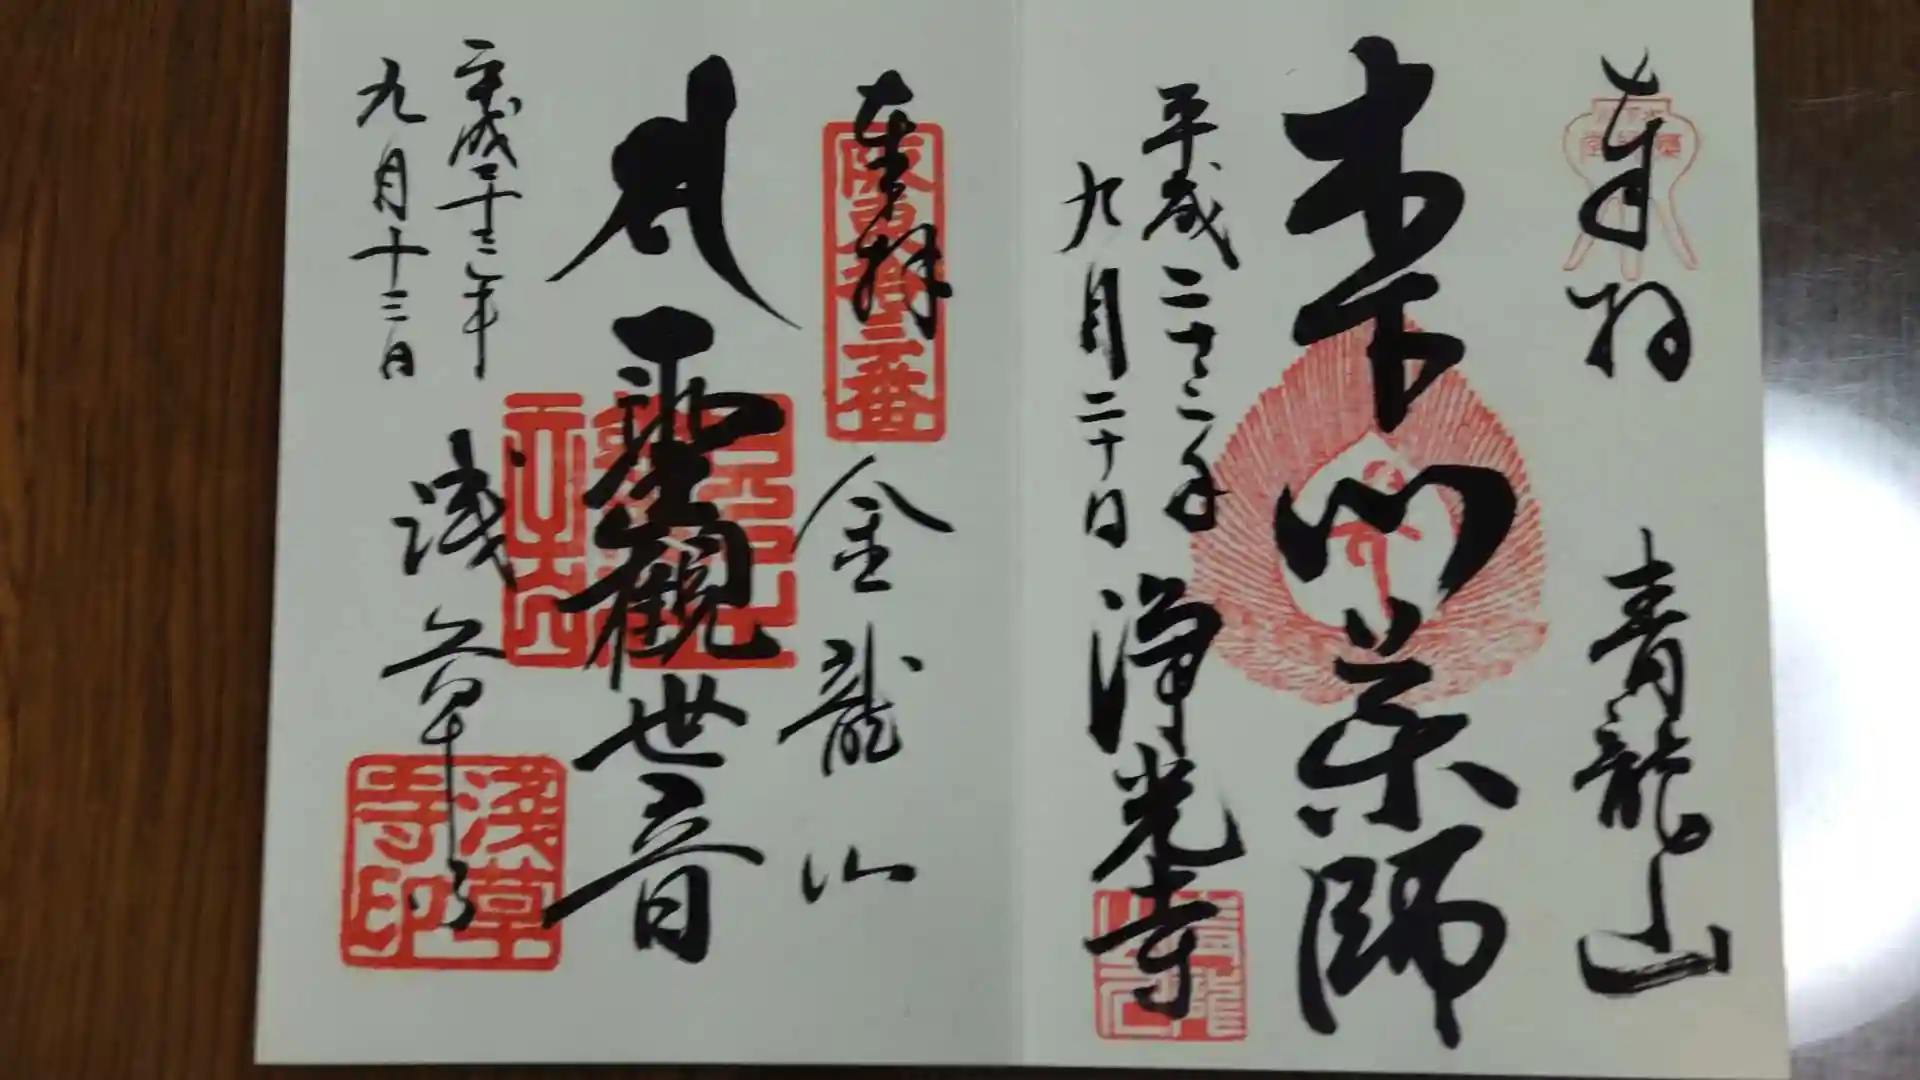 奉拝 青龍山
木下川薬師
平成二十二年
九月二十日
浄光寺
奉拝 金龍山
坂東拾三番
聖観世音
平成二十二年
九月十三日
浅草寺
淺草寺印